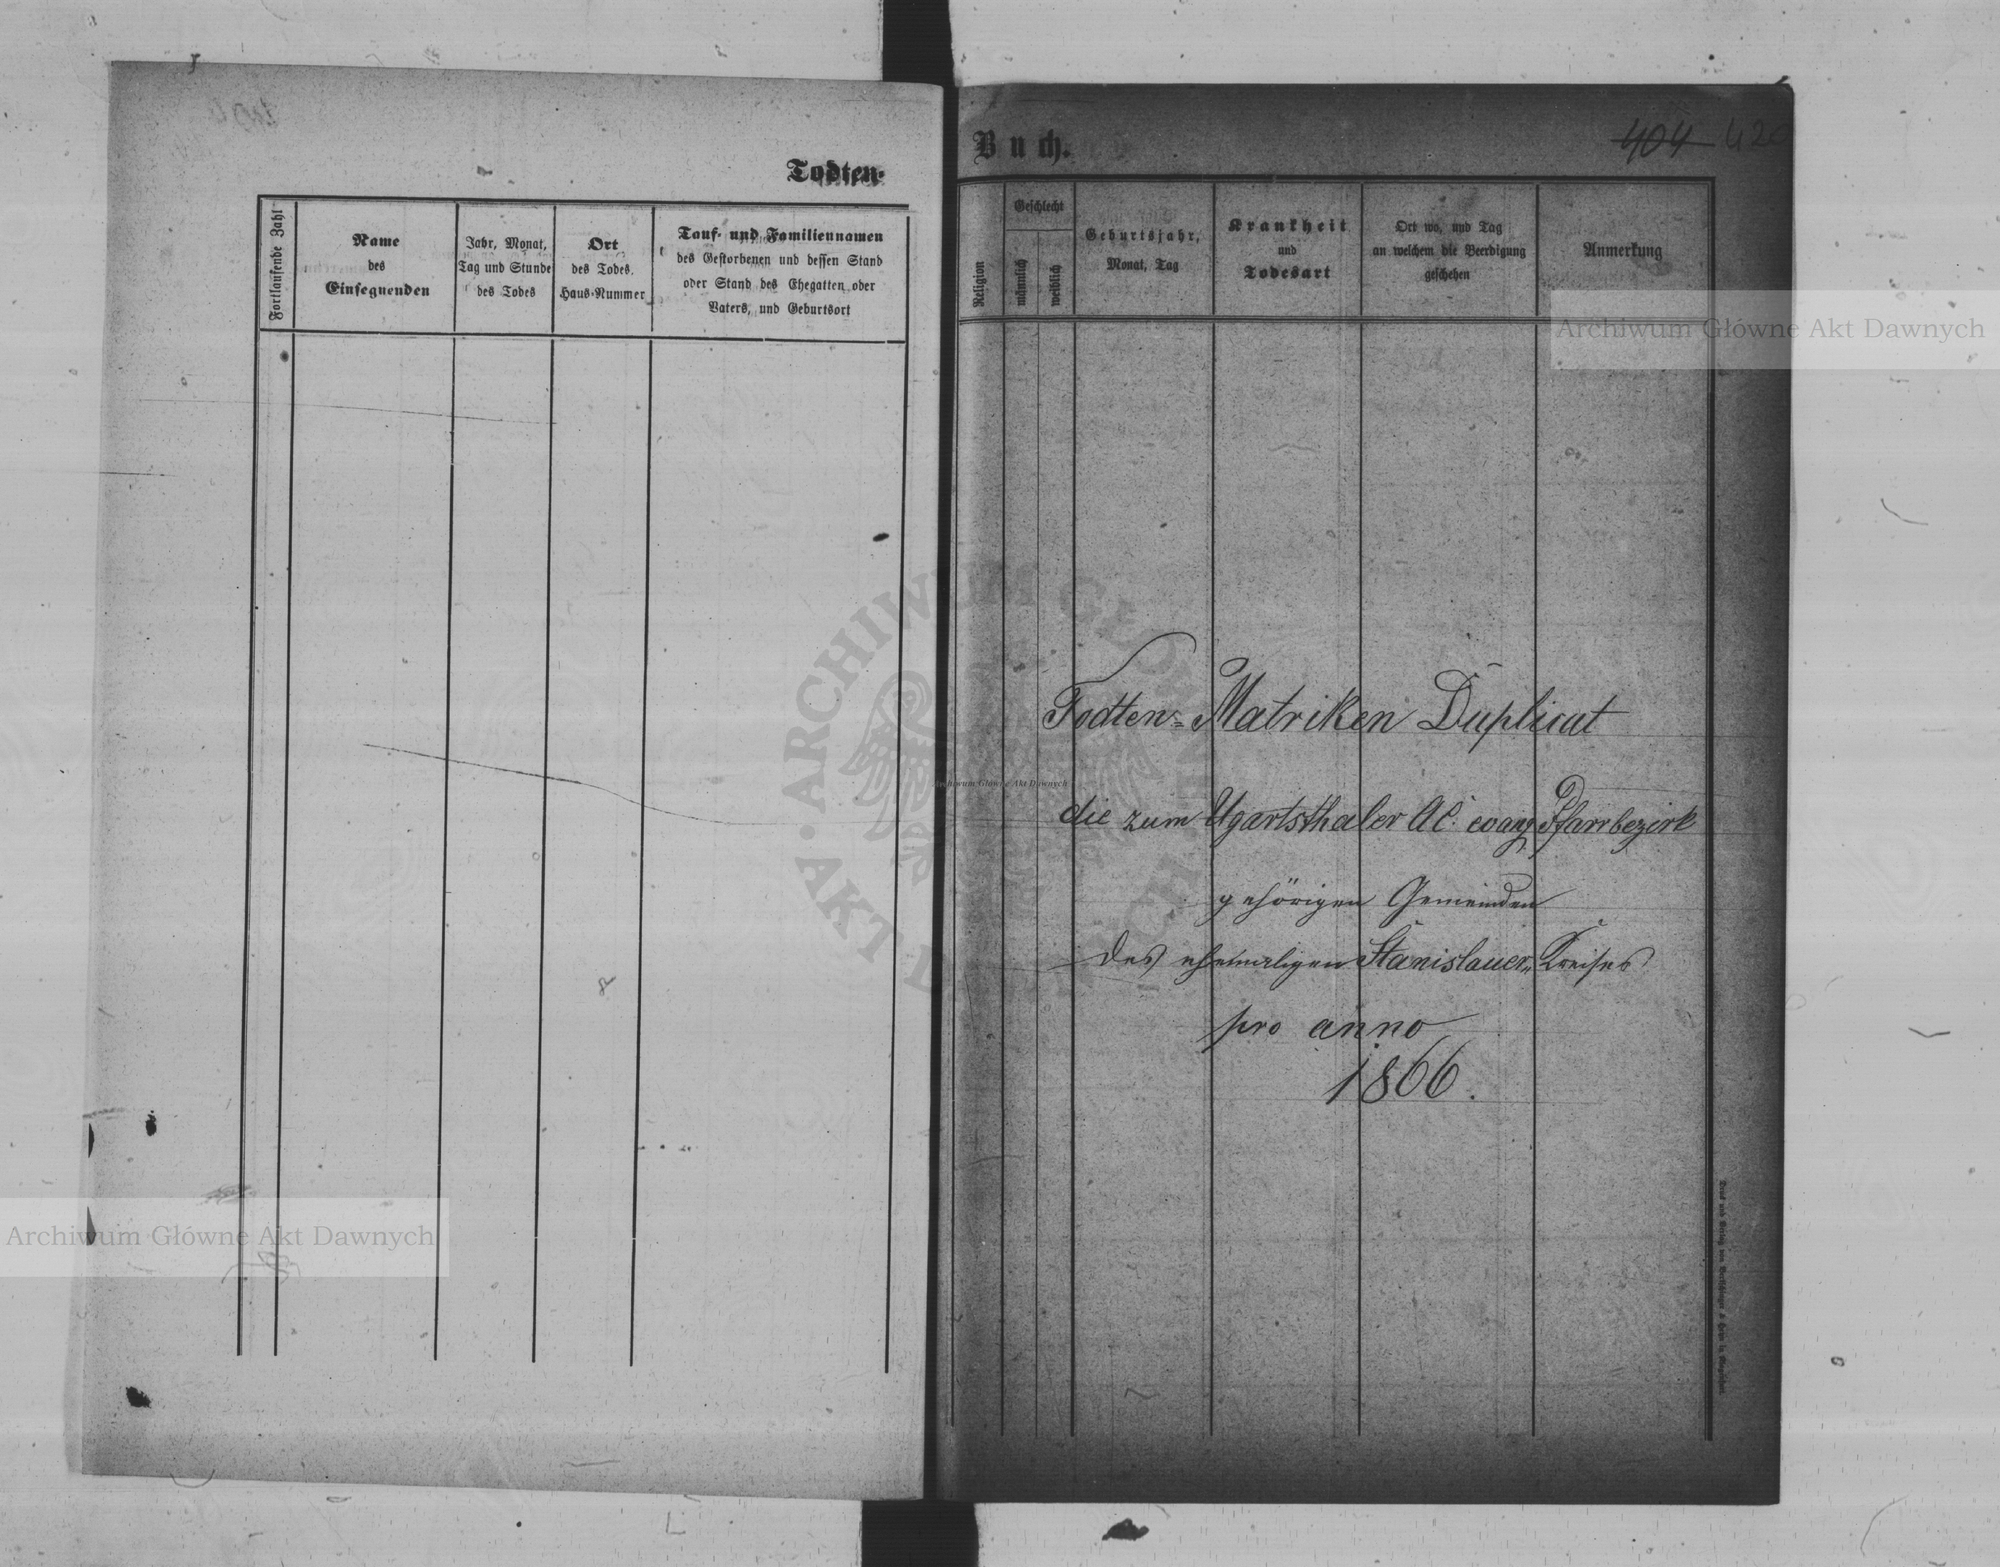 Todten-
Fortlaufende Zahl
Name
des
Einsegnenden
Jahr, Monat,
Tag und Stunde
des Todes
Ort
des Todes,
Haus-Nummer
Tauf- und Familiennamen
des Gestorbenen und dessen Stand
oder Stand des Ehegatten oder
Vaters, und Geburtsort
Buch.
404 420
Religion
Geschlecht
männlich
weiblich
Geburtsjahr,
Monat, Tag
Krankheit
und
Todesart
Ort wo, und Tag
an welchem die Beerdigung
geschehen
Anmerkung
Archiwum Główne Akt Dawnych
Todten-Matriken Duplicat
Archiwum Główne Akt Dawnych
die zum Ugartsthaler A.C. evang Pfarrbezirk
gehörigen Gemeinden
des ehemaligen Stanislauer Kreises
pro anno
1866.
Archiwum Główne Akt Dawnych
ARCHIWUM GŁÓWNE
AKT DAWNYCH